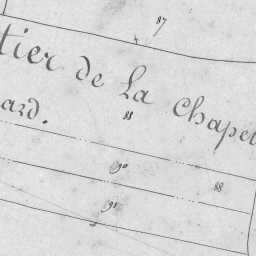 87
tier de La Chapel
ard.
88
90
88
91